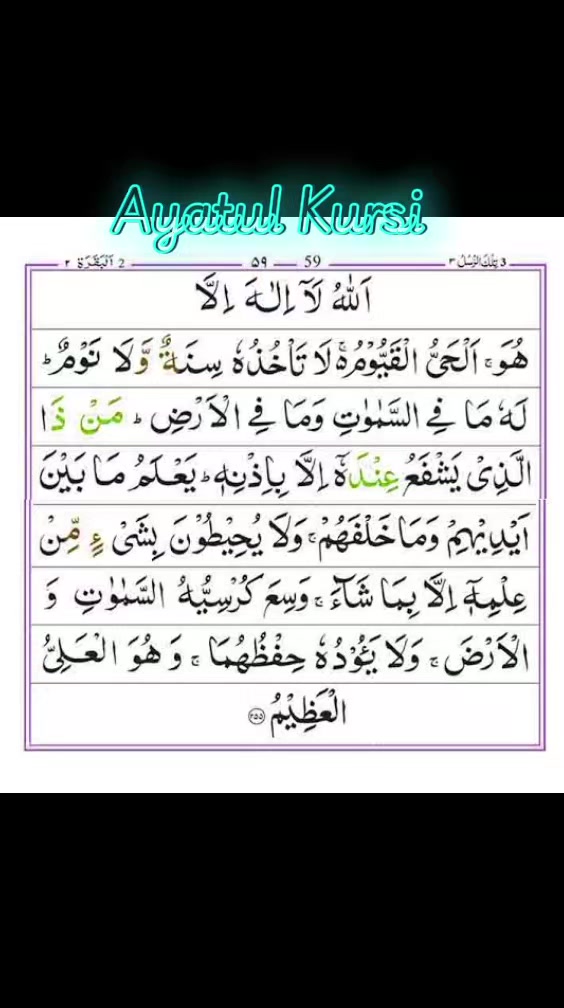 Ayatul Kursi
3 تِلْكَ الرُّسُلُ ٣
59
٥٩
2 اَلْبَقَرَة ٢
اَللّٰهُ لَاۤ اِلٰهَ اِلَّا
هُوَۚ اَلْحَیُّ الْقَیُّوْمُ ۬ۚ لَا تَاْخُذُهٗ سِنَةٌ وَّلَا نَوْمٌؕ
لَهٗ مَا فِی السَّمٰوٰتِ وَمَا فِی الْاَرْضِؕ مَنْ ذَا
الَّذِیْ یَشْفَعُ عِنْدَهٗۤ اِلَّا بِاِذْنِهٖؕ یَعْلَمُ مَا بَیْنَ
اَیْدِیْهِمْ وَمَا خَلْفَهُمْۚ وَلَا یُحِیْطُوْنَ بِشَیْءٍ مِّنْ
عِلْمِهٖۤ اِلَّا بِمَا شَآءَۚ وَسِعَ كُرْسِیُّهُ السَّمٰوٰتِ وَ
الْاَرْضَۚ وَلَا یَـُٔوْدُهٗ حِفْظُهُمَاۚ وَ هُوَ الْعَلِیُّ
الْعَظِیْمُ ٢٥٥